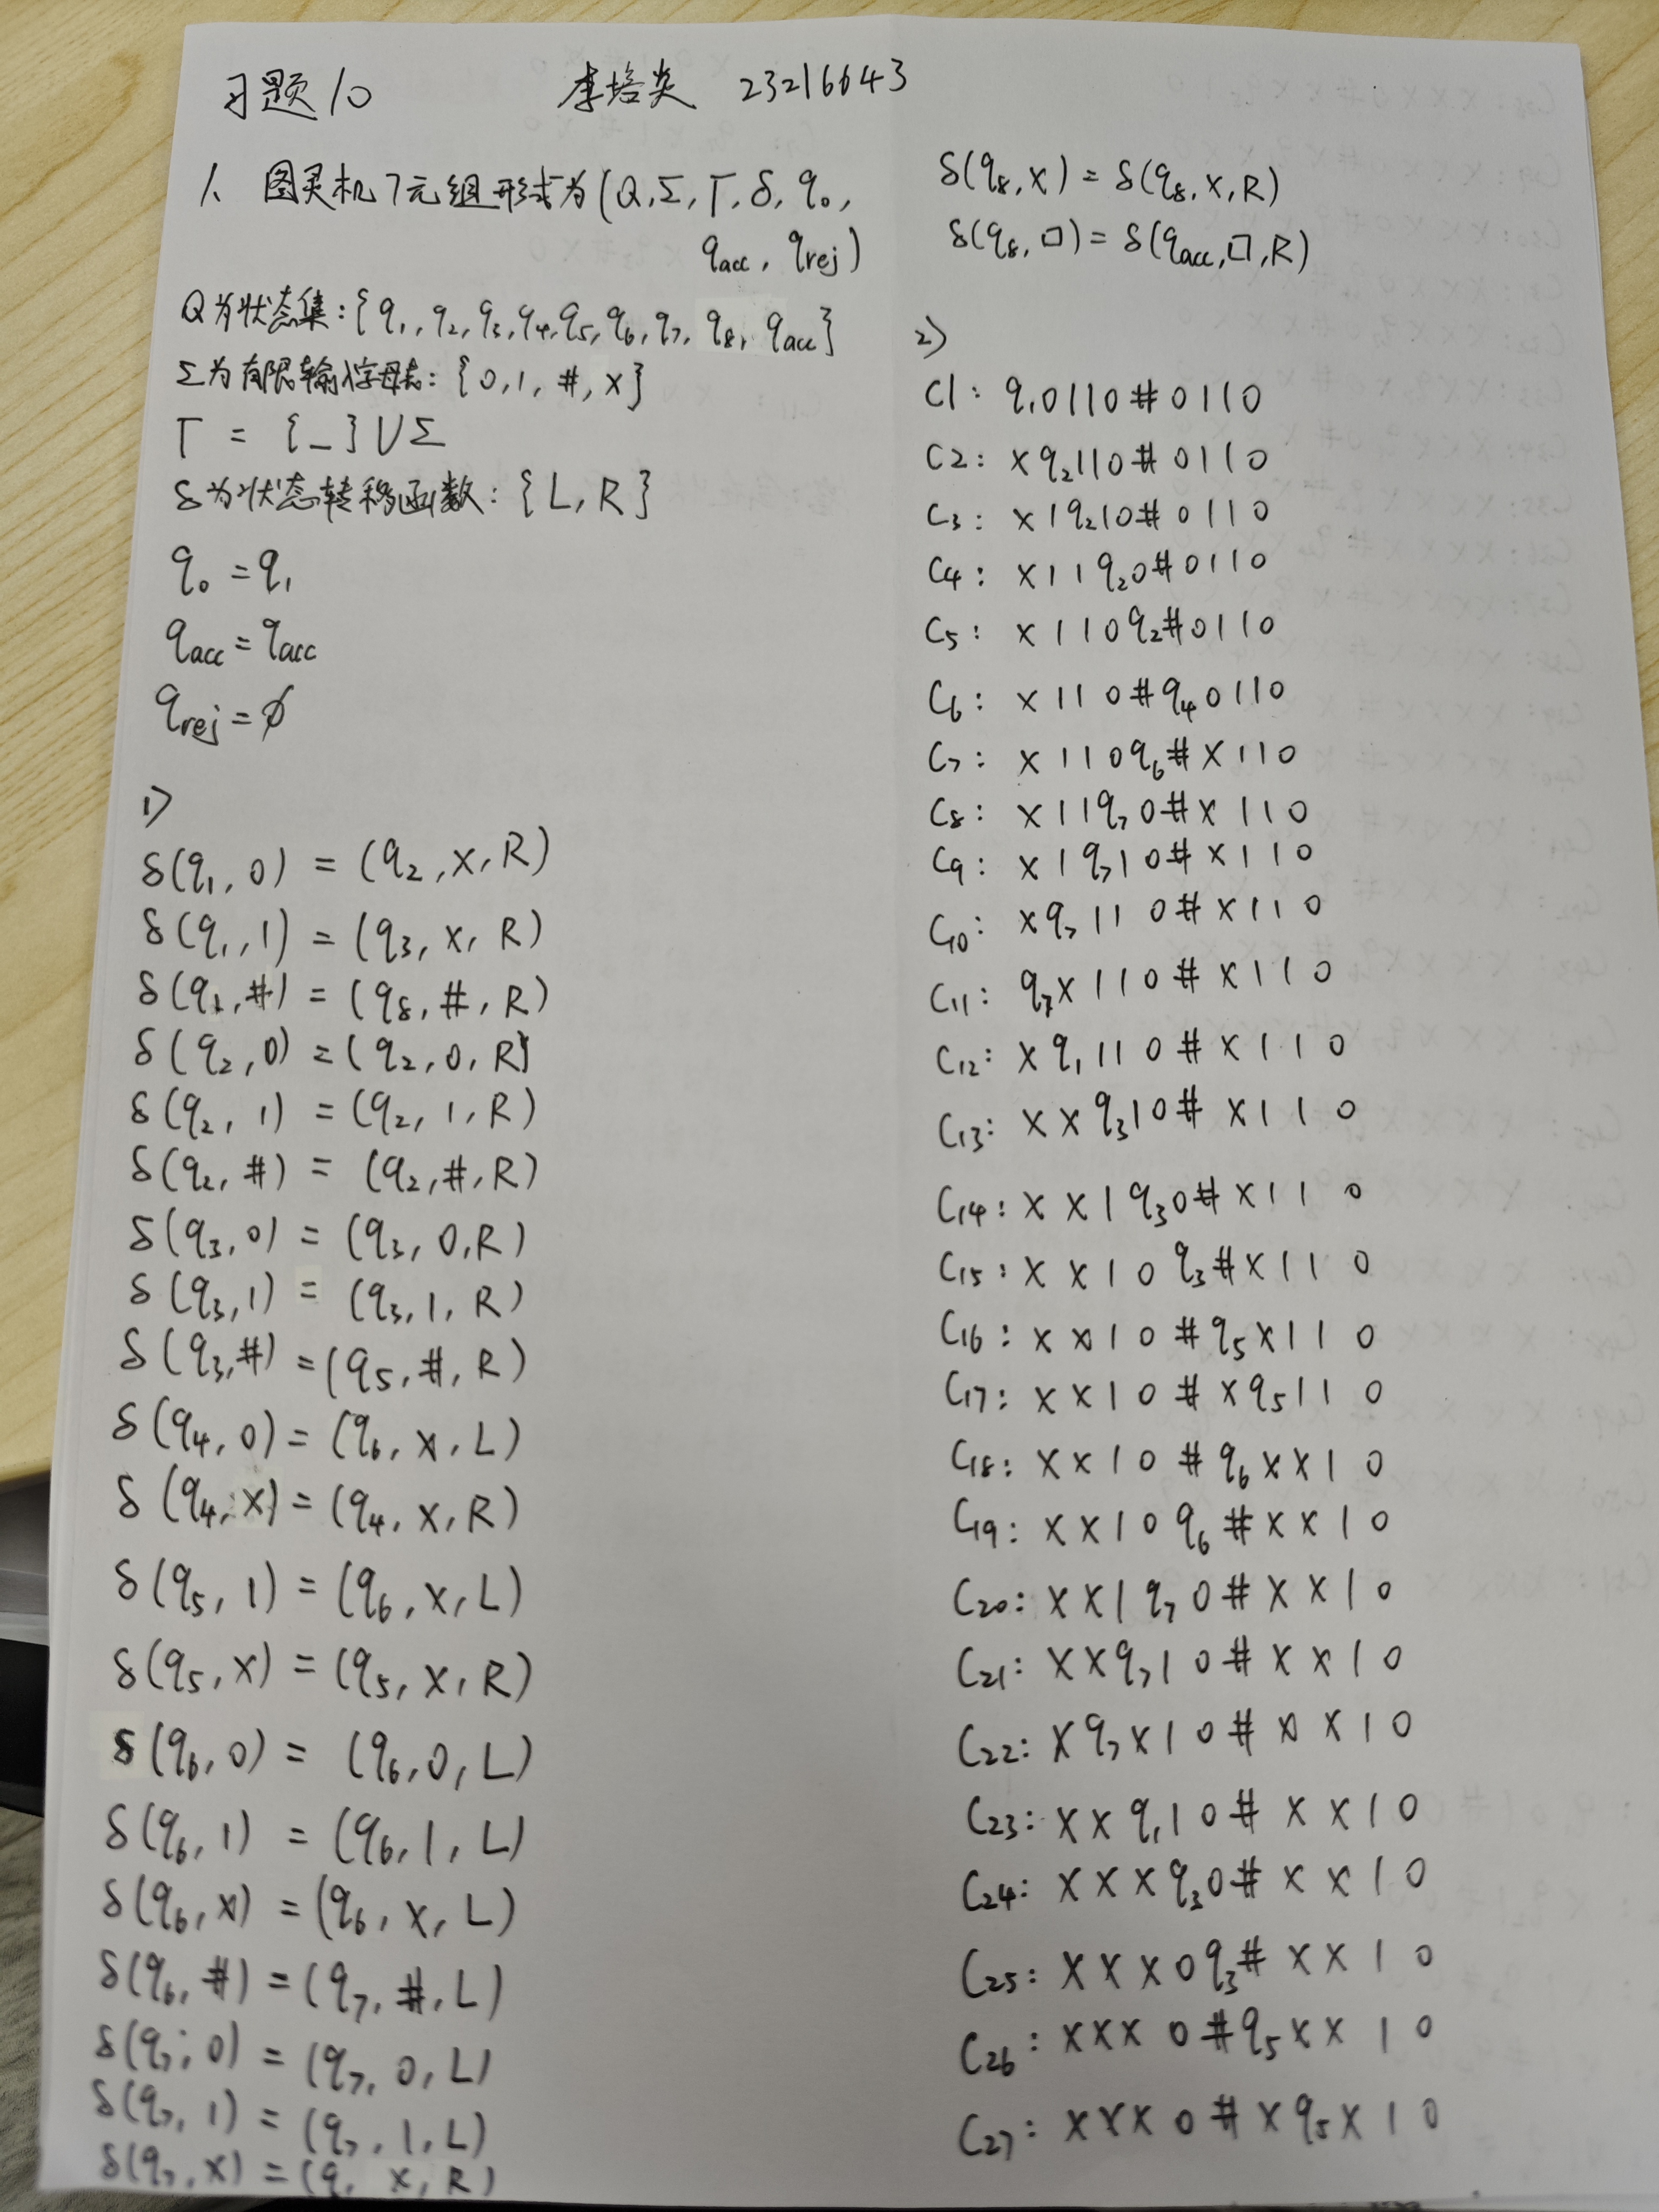 习题10 李培炎 23216643
1. 图灵机7元组形式为(Q, Σ, Γ, δ, q₀,
qacc, qrej)
Q为状态集:{q₁, q₂, q₃, q₄, q₅, q₆, q₇, q₈, qacc}
Σ为有限输入字母表:{0, 1, #, x}
Γ = {_} ∪ Σ
δ为状态转移函数:{L, R}
q₀ = q₁
qacc = qacc
qrej = ∅
1)
δ(q₁, 0) = (q₂, x, R)
δ(q₁, 1) = (q₃, x, R)
δ(q₁, #) = (q₈, #, R)
δ(q₂, 0) = (q₂, 0, R)
δ(q₂, 1) = (q₂, 1, R)
δ(q₂, #) = (q₂, #, R)
δ(q₃, 0) = (q₃, 0, R)
δ(q₃, 1) = (q₃, 1, R)
δ(q₃, #) = (q₅, #, R)
δ(q₄, 0) = (q₆, x, L)
δ(q₄, x) = (q₄, x, R)
δ(q₅, 1) = (q₆, x, L)
δ(q₅, x) = (q₅, x, R)
δ(q₆, 0) = (q₆, 0, L)
δ(q₆, 1) = (q₆, 1, L)
δ(q₆, x) = (q₆, x, L)
δ(q₆, #) = (q₇, #, L)
δ(q₇, 0) = (q₇, 0, L)
δ(q₇, 1) = (q₇, 1, L)
δ(q₇, x) = (q, x, R)
δ(q₈, x) = δ(q₈, x, R)
δ(q₈, □) = δ(qacc, □, R)
2)
C1: q₁0110#0110
C2: xq₂110#0110
C₃: x1q₂10#0110
C₄: x11q₂0#0110
C₅: x110q₂#0110
C₆: x110#q₄0110
C₇: x110q₆#x110
C₈: x11q₇0#x110
C₉: x1q₇10#x110
C₁₀: xq₇110#x110
C₁₁: q₇x110#x110
C₁₂: xq₁110#x110
C₁₃: xxq₃10#x110
C₁₄: xx1q₃0#x110
C₁₅: xx10q₃#x110
C₁₆: xx10#q₅x110
C₁₇: xx10#xq₅110
C₁₈: xx10#q₆xx10
C₁₉: xx10q₆#xx10
C₂₀: xx1q₇0#xx10
C₂₁: xxq₇10#xx10
C₂₂: xq₇x10#xx10
C₂₃: xxq₁10#xx10
C₂₄: xxxq₃0#xx10
C₂₅: xxx0q₃#xx10
C₂₆: xxx0#q₅xx10
C₂₇: xxx0#xq₅x10